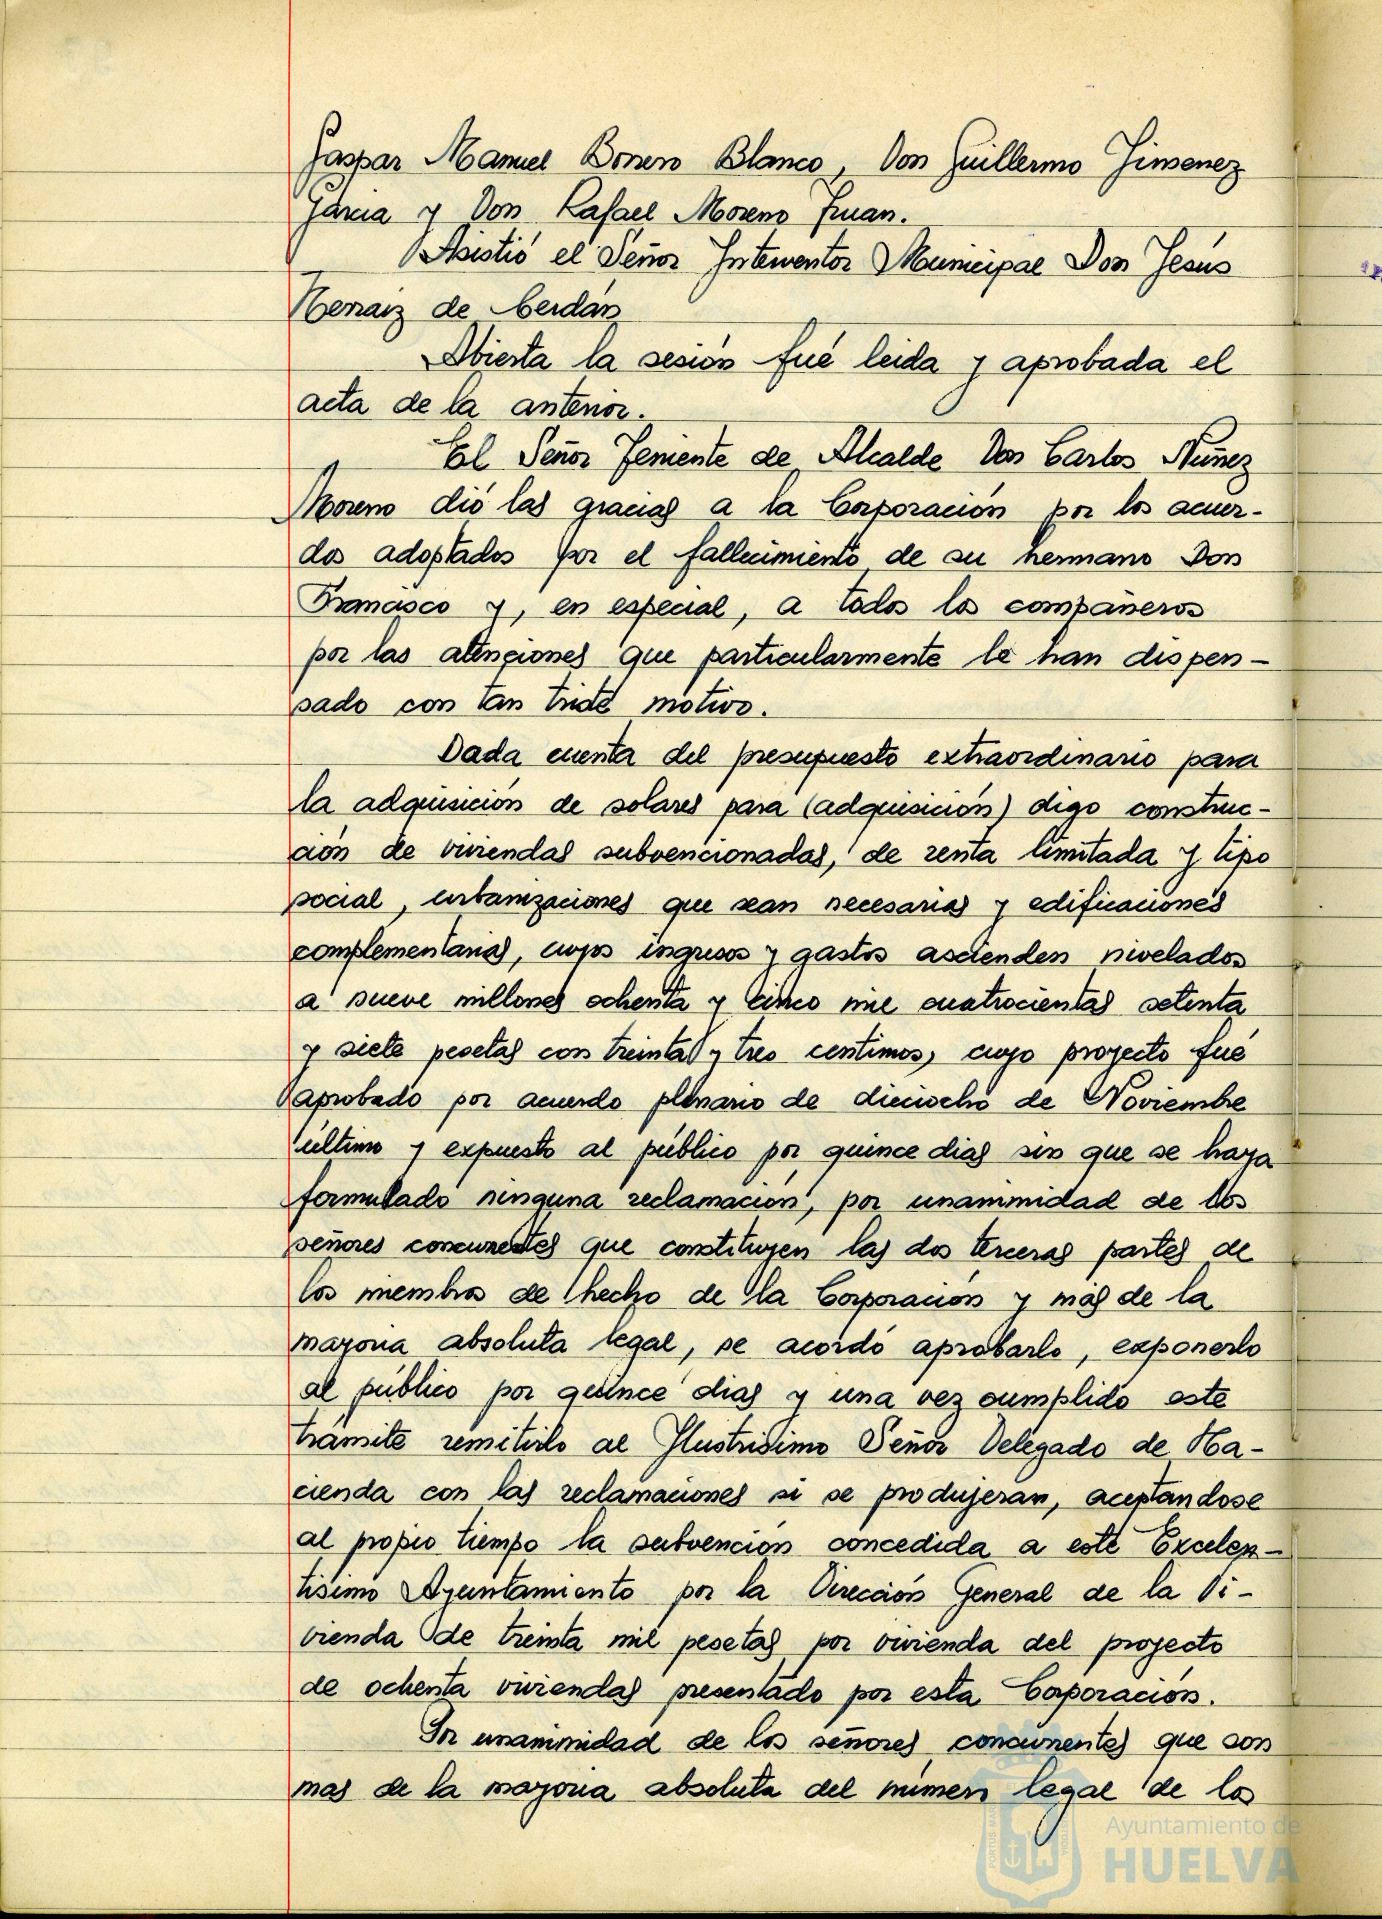 Gaspar Manuel Borrero Blanco, Don Guillermo Jimenez
Garcia y Don Rafael Moreno Juan.
Asistió el Señor Interventor Municipal Don Jesús
Herraiz de Cerdán
Abierta la sesión fué leida y aprobada el
acta de la anterior.
El Señor Teniente de Alcalde Don Carlos Nuñez
Moreno dió las gracias a la Corporación por los acuer-
dos adoptados por el fallecimiento de su hermano Don
Francisco y, en especial, a todos los compañeros
por las atenciones que particularmente le han dispen-
sado con tan triste motivo.
Dada cuenta del presupuesto extraordinario para
la adquisición de solares para (adquisición) digo construc-
ción de viviendas subvencionadas, de renta limitada y tipo
social, urbanizaciones que sean necesarias y edificaciones
complementarias, cuyos ingresos y gastos ascienden nivelados
a nueve millones ochenta y cinco mil cuatrocientas setenta
y siete pesetas con treinta y tres centimos, cuyo proyecto fué
aprobado por acuerdo plenario de dieciocho de Noviembre
último y expuesto al público por quince dias sin que se haya
formulado ninguna reclamación, por unanimidad de los
señores concurrentes que constituyen las dos terceras partes de
los miembros de hecho de la Corporación y más de la
mayoria absoluta legal, se acordó aprobarlo, exponerlo
al público por quince dias y una vez cumplido este
trámite remitirlo al Ilustrisimo Señor Delegado de Ha-
cienda con las reclamaciones si se produjeran, aceptandose
al propio tiempo la subvención concedida a este Excelen-
tisimo Ayuntamiento por la Dirección General de la Vi-
vienda de treinta mil pesetas por vivienda del proyecto
de ochenta viviendas presentado por esta Corporación.
Por unanimidad de los señores concurrentes que son
mas de la mayoria absoluta del número legal de los
Ayuntamiento de
HUELVA